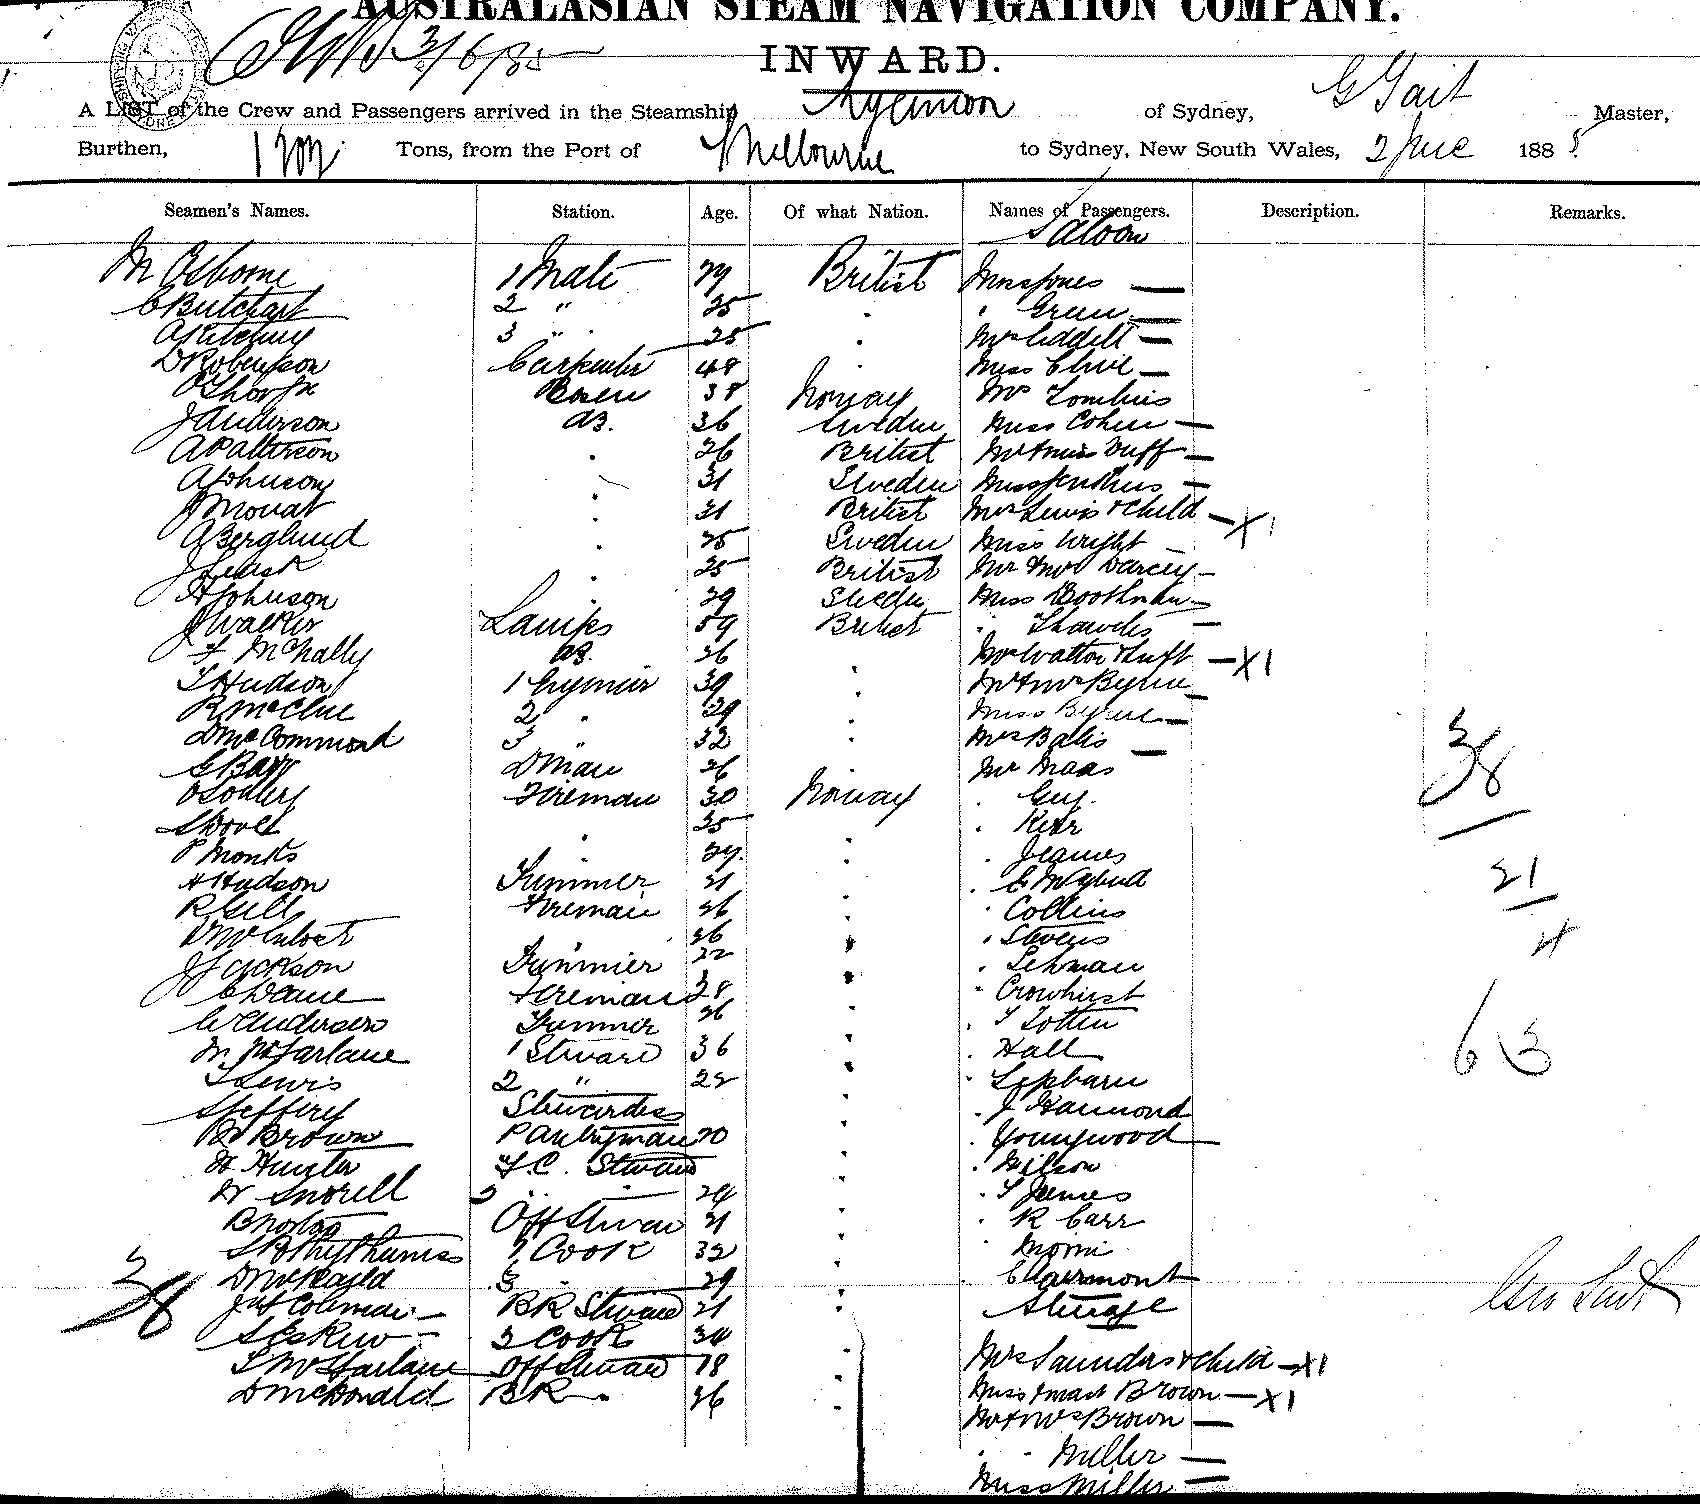 AUSTRALASIAN STEAM NAVIGATION COMPANY.
3/6/85
INWARD.
A LIST of the Crew and Passengers arrived in the Steamship of Sydney, G Tait Master,
Burthen, Tons, from the Port of Melbourne to Sydney, New South Wales, 2 June 1885
Seamen's Names. Station. Age. Of what Nation. Names of Passengers. Description. Remarks.
Saloon
M Osborne 1 Mate British Mrs Jones —
C Butchart 2 " 25 . . Green —
A Kitching 3 " 25 . Mrs Liddell —
D Robertson Carpenter 48 . Miss Clive —
Bosen 38 Norway Mr Tomkins
J Anderson AB. 36 Sweden Miss Cohen —
A Patterson . 26 British Mr & Miss Duff —
A Johnson . 31 Sweden Miss Jenkins —
J Mouat . 31 British Mrs Lewis & Child — X 1
A Berglund . 25 Sweden Miss Wright —
J Leask . 25 British Mr & Mrs Darcey —
A Johnson . 29 Sweden Miss Boothman —
J Walker Lamps 59 British . —
F McNally AB. 26 . Mrs Walton & Inft — X 1
T Hudson 1 Engineer 39 . Mr & Mrs Byrne —
R McClue 2 " 29 . Miss Byrne —
D McCommond 3 " 32 . Mrs —
G Barr Dman 26 . Mr Maas
Fireman 30 Norway . Guy
. 35 . . Kerr
P Monks . . . Jeames
H Hudson Trimmer 21 . .
R Gill Fireman 26 . . Collins
D McIntosh " 26 . . Stevens
J Jackson Trimmer 22 . . Lehman
C Deane Fireman 28 . . Crowhirst
W Anderson Trimmer 26 . . T Totten
M McFarlane 1 Steward 36 . . Hall
T Lewis 2 " 22 . .
S Jeffrey Stewardess . . J Hammond
B Brown Pantryman 20 . . Youngwood
H Hunter F.C. Steward . . Wilson
W Snorell 2 " " 24 . . T James
Off Steward 21 . . R Carr
2 Cook 32 . .
3 " 29 . . Clairmont
Jas Coleman — BR Steward 21 . Steerage
S Eskew — 3 Cook 34 .
T McFarlane Off Steward 18 . Mrs Saunders & Child — X 1
D McDonald BR . 26 . Miss & Mast Brown — X 1
Mr & Mrs Brown —
. . Miller —
Miss Miller —
38
21
4
63
38
Geo Tait